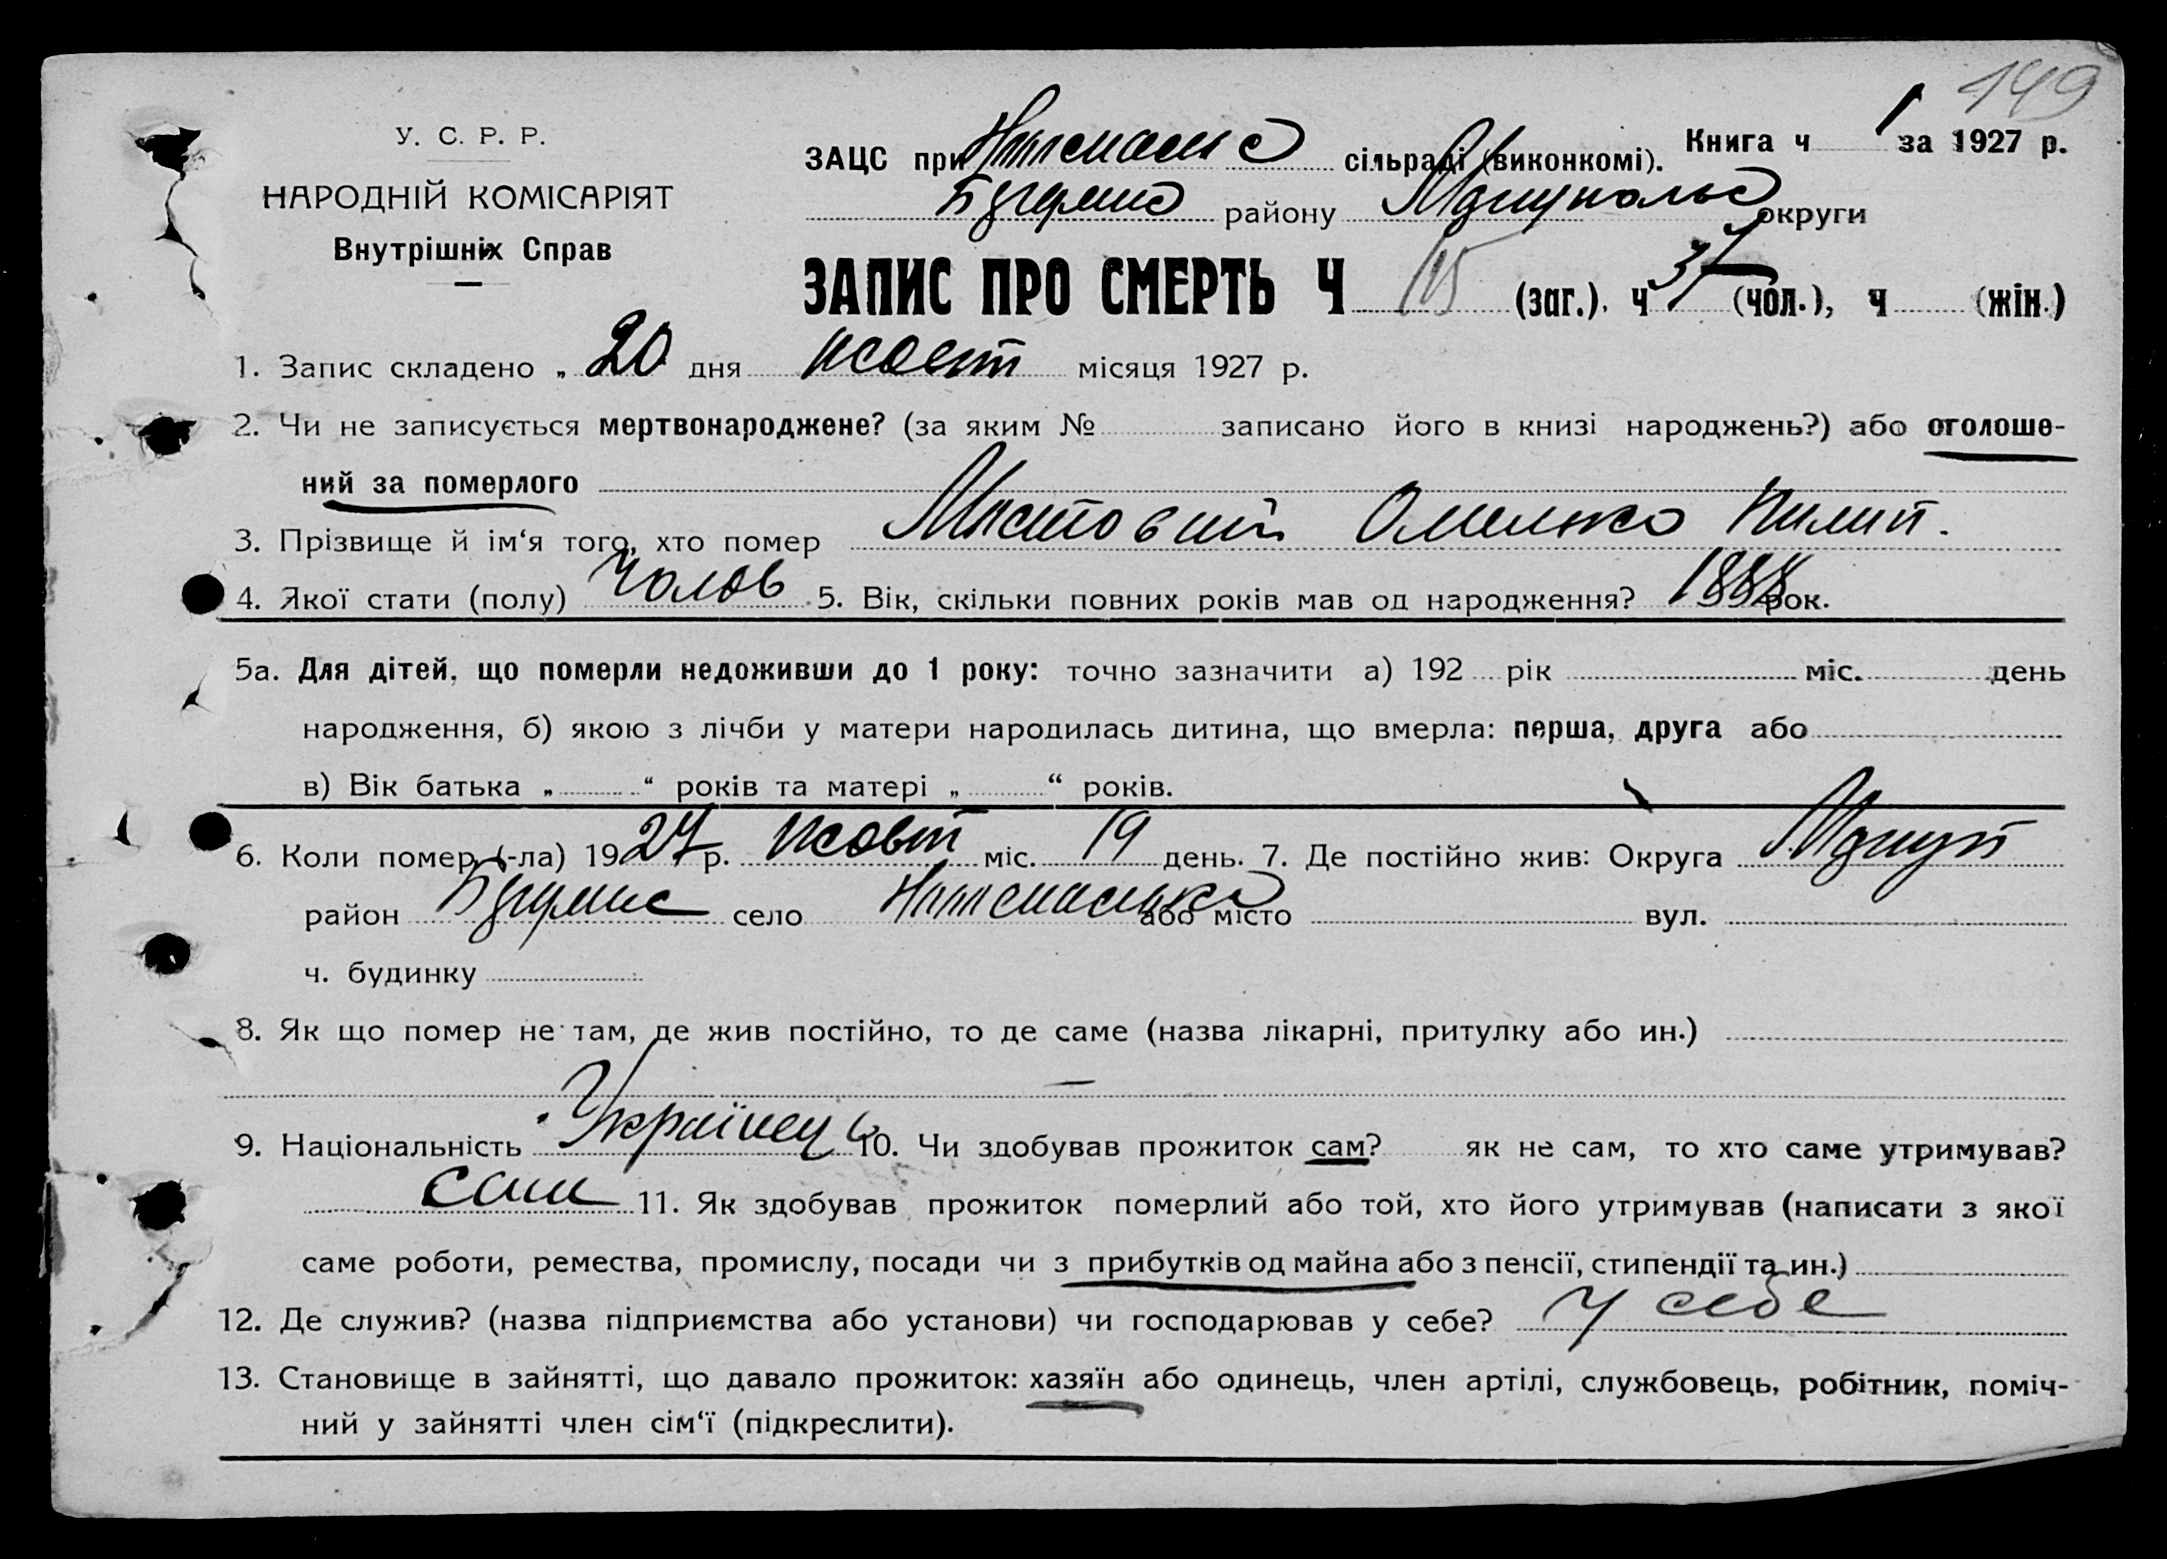 149
У. С. Р. Р.
НАРОДНІЙ КОМІСАРІЯТ
Внутрішніх Справ
ЗАЦС при сільраді (виконкомі). Книга ч 1 за 1927 р.
району округи
ЗАПИС ПРО СМЕРТЬ Ч 115 (заг.). ч 37 (чол.), ч (жін.)
1. Запис складено „ 20 дня жовт місяця 1927 р.
2. Чи не записується мертвонароджене? (за яким № записано його в книзі народжень?) або оголоше-
ний за померлого
3. Прізвище й ім‘я того, хто помер Омелько Пилип.
4. Якої стати (полу) Чолов 5. Вік, скільки повних років мав од народження? 1888 рок.
5а. Для дітей, що померли недоживши до 1 року: точно зазначити а) 192 рік міс. день
народження, б) якою з лічби у матери народилась дитина, що вмерла: перша, друга або
в) Вік батька „ “ років та матері „ “ років.
6. Коли помер (-ла) 1927 р. жовт міс. 19 день. 7. Де постійно жив: Округа
район село або місто вул.
ч. будинку
8. Як що помер не там, де жив постійно, то де саме (назва лікарні, притулку або ин.)
—
9. Національність Українець 10. Чи здобував прожиток сам? як не сам, то хто саме утримував?
сам 11. Як здобував прожиток померлий або той, хто його утримував (написати з якої
саме роботи, ремества, промислу, посади чи з прибутків од майна або з пенсії, стипендії та ин.)
12. Де служив? (назва підприємства або установи) чи господарював у себе? у себе
13. Становище в зайнятті, що давало прожиток: хазяїн або одинець, член артілі, службовець, робітник, поміч-
ний у зайнятті член сім‘ї (підкреслити).